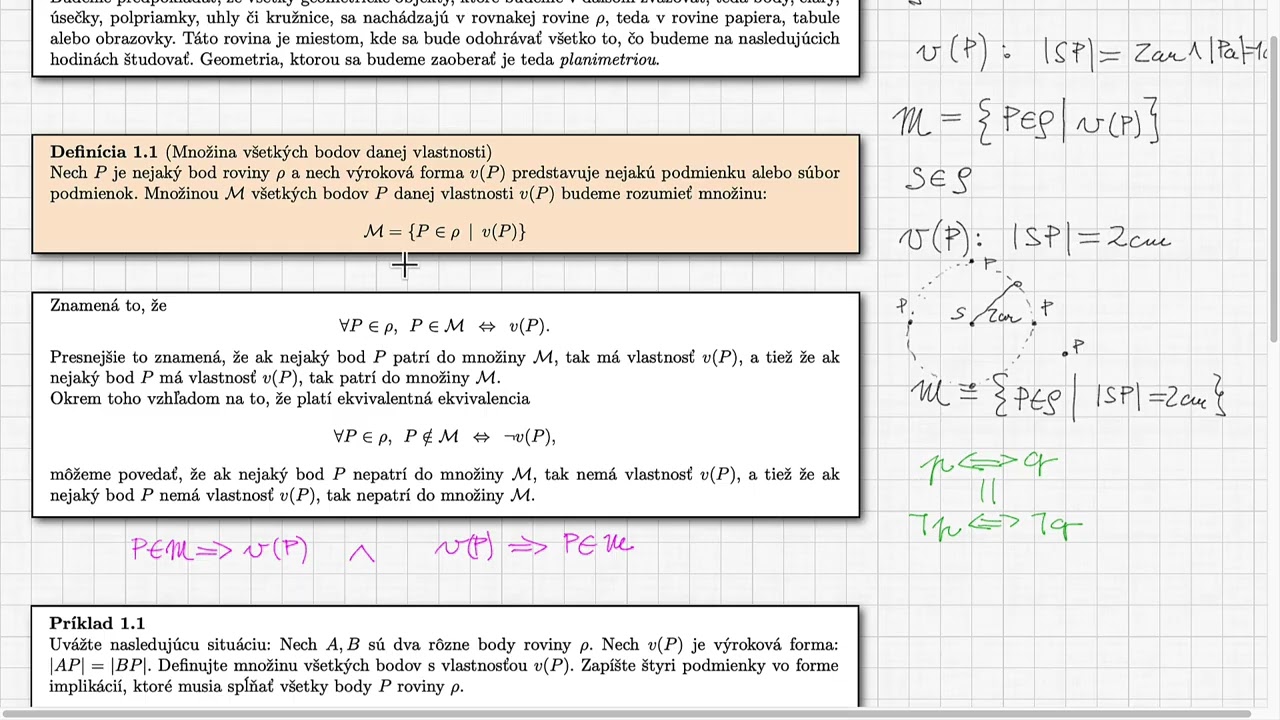 úsečky, polpriamky, uhly či kružnice, sa nachádzajú v rovnakej rovine ρ, teda v rovine papiera, tabule
alebo obrazovky. Táto rovina je miestom, kde sa bude odohrávať všetko to, čo budeme na nasledujúcich
hodinách študovať. Geometria, ktorou sa budeme zaoberať je teda planimetriou.
Definícia 1.1 (Množina všetkých bodov danej vlastnosti)
Nech P je nejaký bod roviny ρ a nech výroková forma v(P) predstavuje nejakú podmienku alebo súbor
podmienok. Množinou ℳ všetkých bodov P danej vlastnosti v(P) budeme rozumieť množinu:
ℳ = {P ∈ ρ | v(P)}
Znamená to, že
∀P ∈ ρ, P ∈ ℳ ⇔ v(P).
Presnejšie to znamená, že ak nejaký bod P patrí do množiny ℳ, tak má vlastnosť v(P), a tiež že ak
nejaký bod P má vlastnosť v(P), tak patrí do množiny ℳ.
Okrem toho vzhľadom na to, že platí ekvivalentná ekvivalencia
∀P ∈ ρ, P ∉ ℳ ⇔ ¬v(P),
môžeme povedať, že ak nejaký bod P nepatrí do množiny ℳ, tak nemá vlastnosť v(P), a tiež že ak
nejaký bod P nemá vlastnosť v(P), tak nepatrí do množiny ℳ.
P∈ℳ ⇒ v(P) ∧ v(P) ⇒ P∈ℳ
Príklad 1.1
Uvážte nasledujúcu situáciu: Nech A, B sú dva rôzne body roviny ρ. Nech v(P) je výroková forma:
|AP| = |BP|. Definujte množinu všetkých bodov s vlastnosťou v(P). Zapíšte štyri podmienky vo forme
implikácií, ktoré musia spĺňať všetky body P roviny ρ.
v(P): |SP| = 2cm ∧ |Pa|=1c
ℳ = {P∈ρ | v(P)}
S∈ρ
v(P): |SP| = 2cm
P
P
S
2cm
P
P
ℳ = {P∈ρ | |SP|=2cm}
p ⇔ q
||
¬p ⇔ ¬q